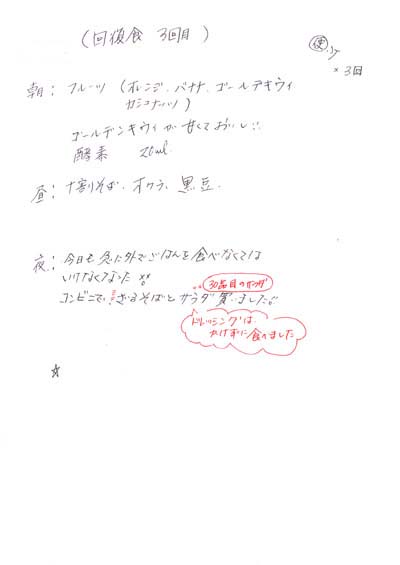 (回復食 3回目)
便
×3回
朝: フルーツ (オレンジ、バナナ、ゴールデキウイ
カシューナッツ)
ゴールデンキウイが甘くておいしい!!
酵素 20ml
昼: 十割そば、オクラ、黒豆、
夜: 今日も急に外でごはんを食べなくては
いけなくなった ××
30品目のサラダ
コンビニで、ざるそばとサラダ買いました!!
ドレッシングは、
かけずに食べました
☆